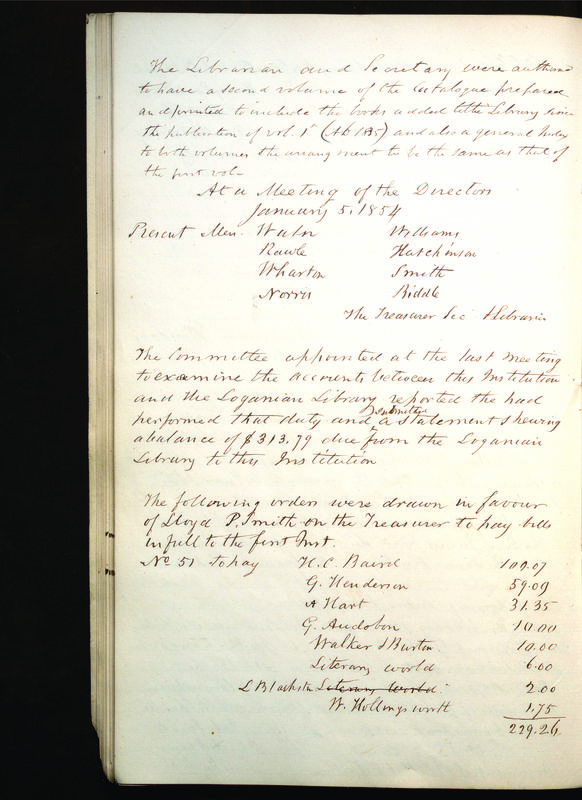 The Librarian and Secretary were authorised
to have a second volume of the Catalogue prepared
and printed to include the books added to the Library since
the publication of vol. 1st (AD 1835) and also a general Index
to both volumes the arrangement to be the same as that of
the first vol-
At a Meeting of the Directors
January 5, 1854
Present Mess. Waln Williams
Rawle Hutchinson
Wharton Smith
Norris Biddle
The Treasurer Sec & Librarian
The Committee appointed at the last meeting
to examine the accounts between this Institution
and the Loganian Library reported the had
performed that duty and submitted a statement shewing
a balance of $313.79 due from the Loganian
Library to this Institution
The following orders were drawn in favour
of Lloyd P. Smith on the Treasurer to pay bills
in full to the first Inst.
No 51 to pay H. C. Baird 109.07
G. Henderson 59.09
A Hart 31.35
G. Audobon 10.00
Walker & Burton 10.00
Literary world 6.00
L Blackstn Literary World 2.00
W. Hollingsworth 1.75
229.26